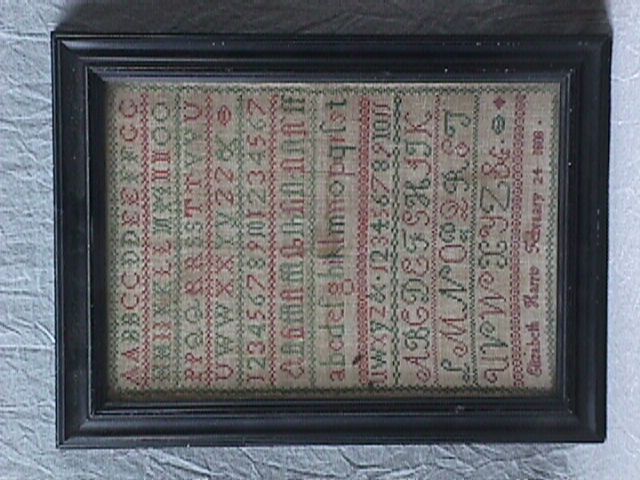 AABBCCDDEEFFGG
HHIIKKLLMMNNOO
PPQQRRSSTTVVU
UWWXXYYZZ&
123456789101234567
abcdefghiklmnopqrst
uwxyz&·1234567891011
ABCDEFGHIK
LMNOPQRST
UVWXYZ&c·
Elizabeth February 24